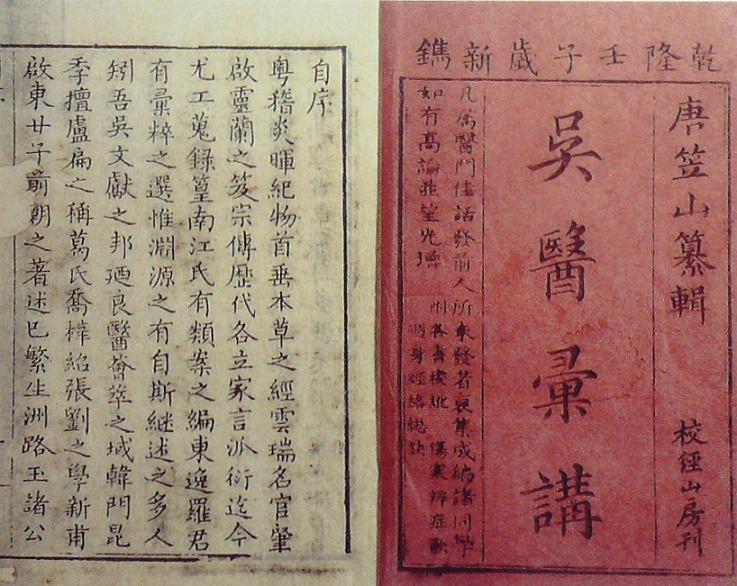 乾隆壬子歲新鐫
唐笠山纂輯
吳醫彙講
校經山房刊
凡屬醫門佳話發前人所未發者裒集成編諸同學
如有高論 望光
傷寒辨症歌
自序
粵稽炎暉紀物首垂本草之經雲瑞名官肇
啟靈蘭之笈宗傳歷代各立家言派衍迄今
尤工蒐錄篁南江氏有類案之編東逸羅君
有彙粹之選惟淵源之有自斯繼述之多人
矧吾吳文獻之邦廼良醫薈萃之域韓門昆
季擅盧扁之稱葛氏喬梓紹張劉之學新甫
啟東廿子前朝之著述已繁生洲路玉諸公